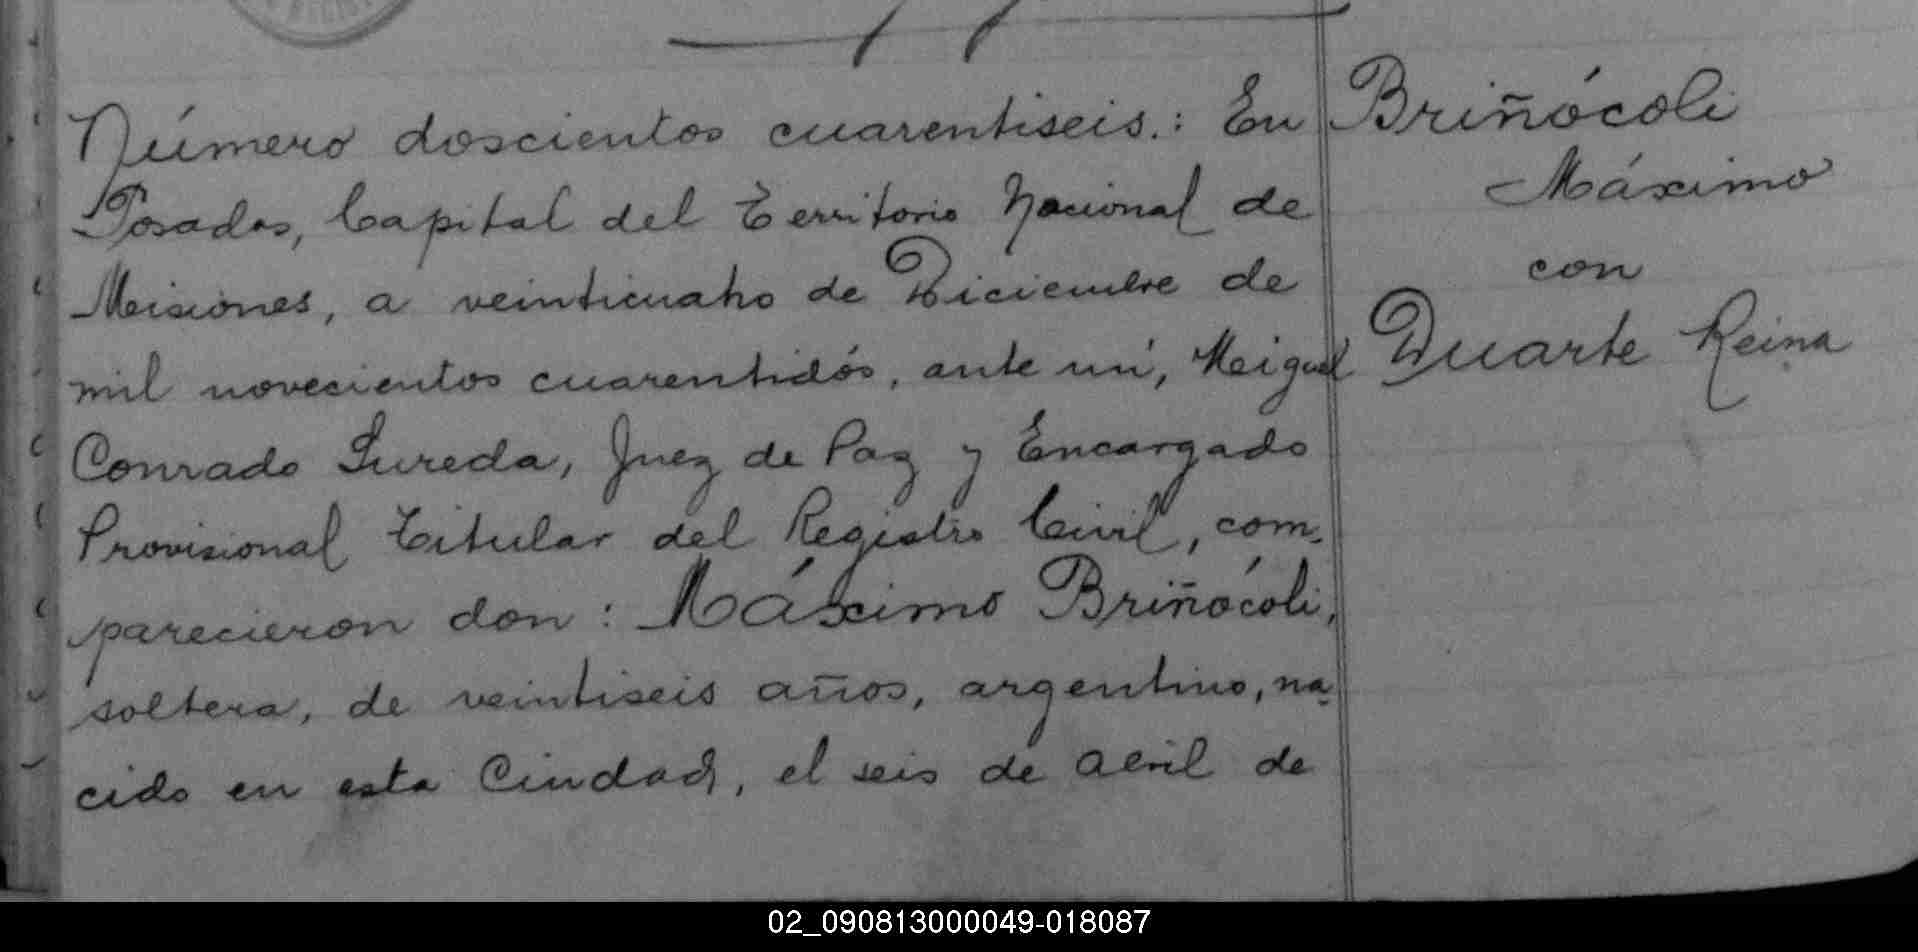 Número doscientos cuarentiseis.: En
Posadas, Capital del Territorio Nacional de
Misiones, a veinticuatro de Diciembre de
mil novecientos cuarentidós, ante mí, Miguel
Conrado Sureda, Juez de Paz y Encargado
Provisional Titular del Registro Civil, com-
parecieron don: Máximo Briñócoli,
soltero, de veintiseis años, argentino, na-
cido en esta Ciudad, el seis de Abril de
Briñócoli
Máximo
con
Duarte Reina
02_090813000049-018087